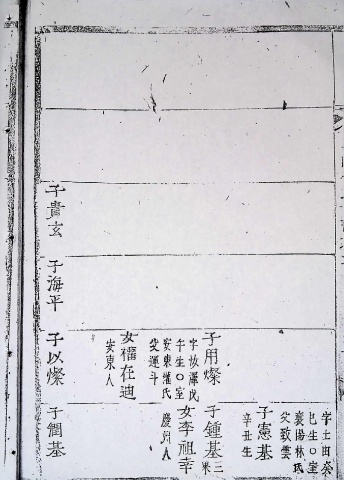 字土田癸
巳生○室
襄陽林氏
父致雲
子憲基
辛丑生
子用燦
字故澤戊
午生○室
安東權氏
父運斗
女權在迪
安東人
子鍾基
三
女李祖幸
慶州人
子貴玄
子海平
子以燦
子潤基